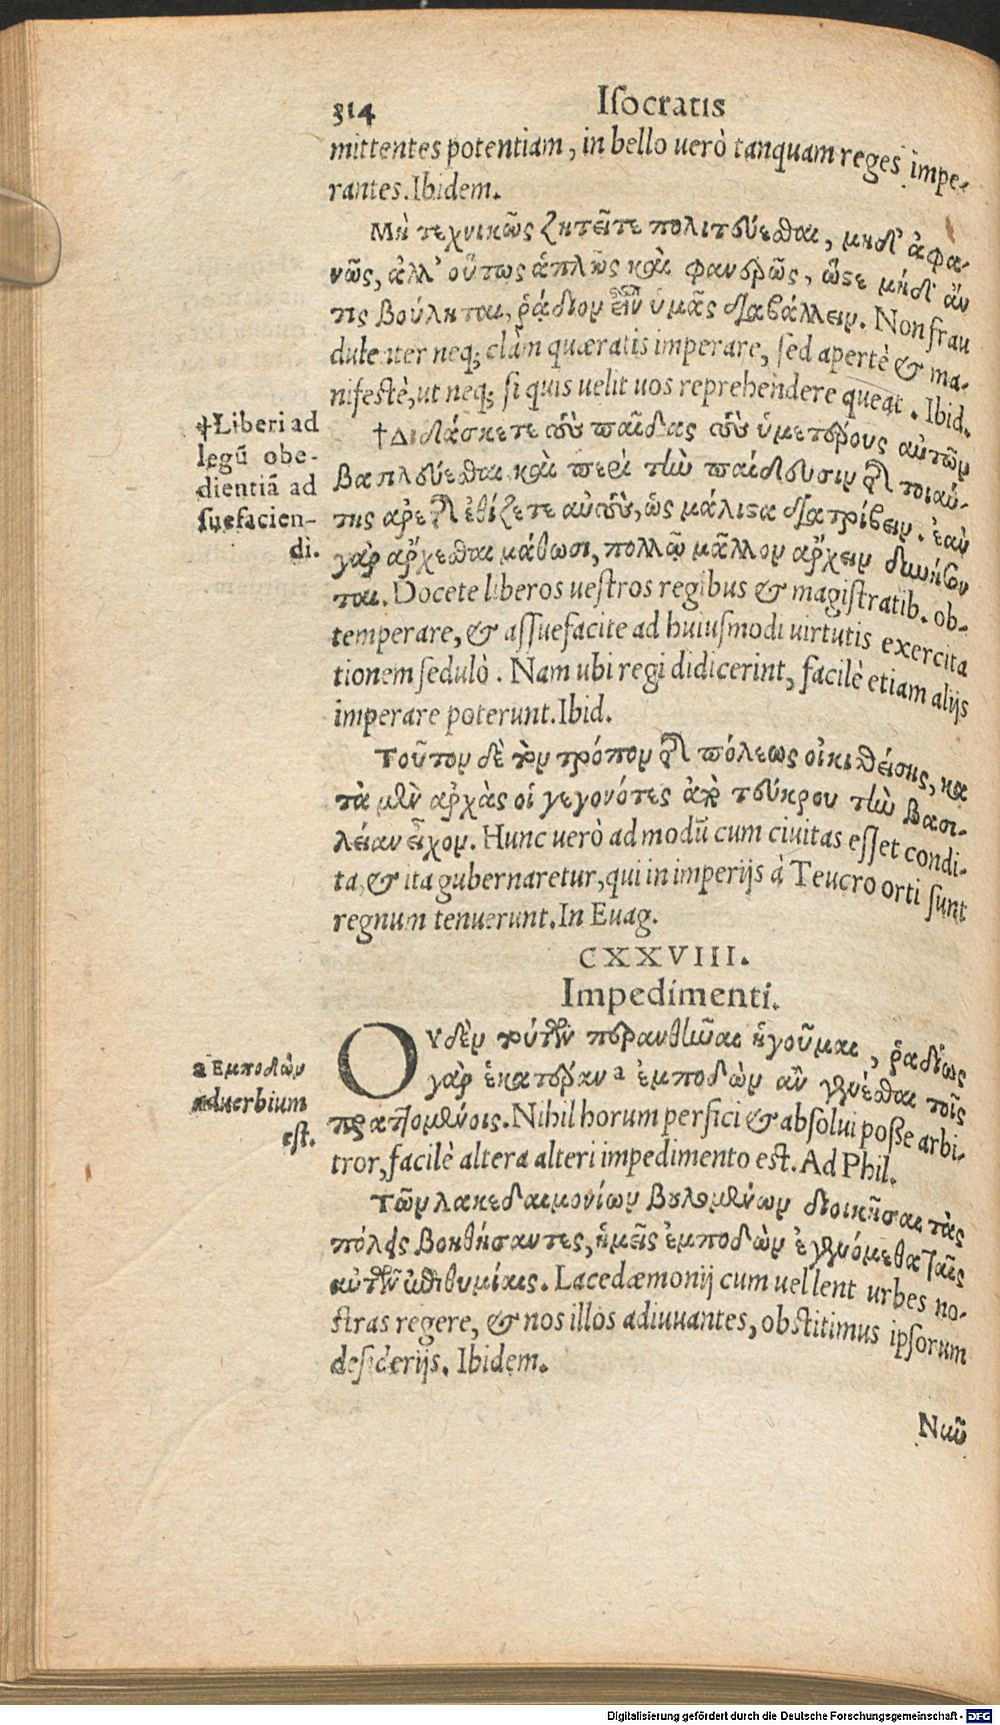 314 Iſocratis
mittentes potentiam, in bello uerò tanquam reges impe-
rantes. Ibidem.
Μὴ τεχνικῶς ζητεῖτε πολιτεύεσθαι, μηδ' ἀφα-
νῶς, ἀλλ' οὕτως ἁπλῶς καὶ φανερῶς, ὥστε μηδ' ἄν
τις βούληται, ῥᾴδιον εἶναι ὑμᾶς διαβάλλειν. Non frau
dulenter neq; clàm quæratis imperare, ſed apertè & ma-
nifeſtè, ut neq; ſi quis uelit uos reprehendere queat. Ibid.
†Liberi ad
legū obe-
dientiā ad
ſuefacien-
di.
†Διδάσκετε τοὺς παῖδας τοὺς ὑμετέρους αὐτῶν
βασιλεύεσθαι καὶ περὶ τὴν παίδευσιν τῆς τοιαύ-
της ἀρετῆς ἐθίζετε αὐτοὺς, ὡς μάλιστα διατρίβειν. ἐὰν
γὰρ ἄρχεσθαι μάθωσι, πολλῷ μᾶλλον ἄρχειν δυνήσον
ται. Docete liberos ueſtros regibus & magiſtratib. ob-
temperare, & aſſuefacite ad huiuſmodi uirtutis exercita
tionem ſedulò. Nam ubi regi didicerint, facilè etiam alijs
imperare poterunt. Ibid.
Τοῦτον δὲ τὸν τρόπον τῆς πόλεως οἰκισθείσης, κα
τὰ μὲν ἀρχὰς οἱ γεγονότες ἀπὸ τεύκρου τὴν βασι-
λείαν εἶχον. Hunc uerò ad modū cum ciuitas eſſet condi-
ta, & ita gubernaretur, qui in imperijs à Teucro orti ſunt
regnum tenuerunt. In Euag.
CXXVIII.
Impedimenti.
Οὐδὲν τούτων περανθῆναι ἡγοῦμαι, ῥᾳδίως
a Ἐμποδὼν
aduerbium
eſt.
γὰρ ἑκατέραν a ἐμποδὼν ἂν γενέσθαι τοῖς
πραττομένοις. Nihil horum perfici & abſolui poſſe arbi-
tror, facilè altera alteri impedimento eſt. Ad Phil.
Τῶν λακεδαιμονίων βουλομένων διοικῆσαι τὰς
πόλεις βοηθήσαντες, ἡμεῖς ἐμποδὼν ἐγενόμεθα ταῖς
αὐτῶν ἐπιθυμίαις. Lacedæmonij cum uellent urbes no-
ſtras regere, & nos illos adiuuantes, obſtitimus ipſorum
deſiderijs. Ibidem.
Ναῦ
Digitalisierung gefördert durch die Deutsche Forschungsgemeinschaft - DFG